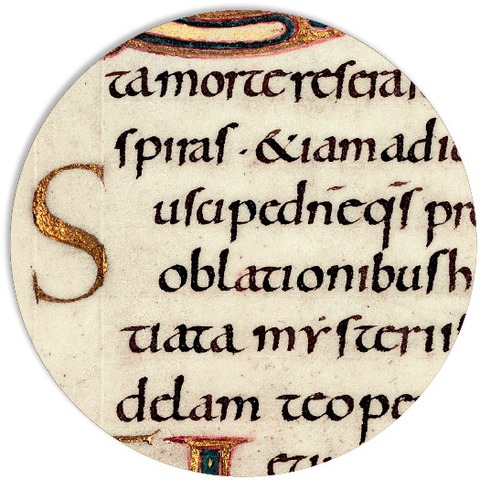 tamortereserar
spiras · &iamadiu
S uscipedn̄eq̄s pr
oblationibush
tiata mẏsteriis
delam teope